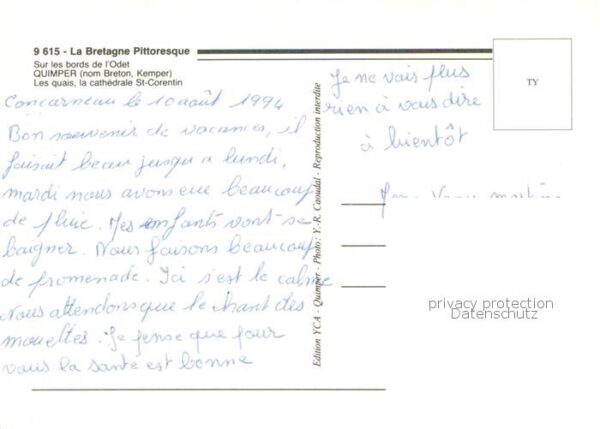 9 615 - La Bretagne Pittoresque
Sur les bords de l'Odet
QUIMPER (nom Breton, Kemper)
Les quais, la cathédrale St-Corentin
Concarneau le 10 août 1994
Bon souvenir de vacances, il
faisait beau jusqu a lundi,
mardi nous avons eue beaucoup
de pluie. Mes enfants vont se
baigner. Nous faisons beaucoup
de promenade. Ici s'est le calme
Nous attendons que le chant des
mouettes. Je pense que pour
vous la santé est bonne
Je ne vais plus
rien à vous dire
à bientôt
Edition YCA - Quimper - Photo : Y.-R. Caoudal - Reproduction interdite
TY
privacy protection
Datenschutz